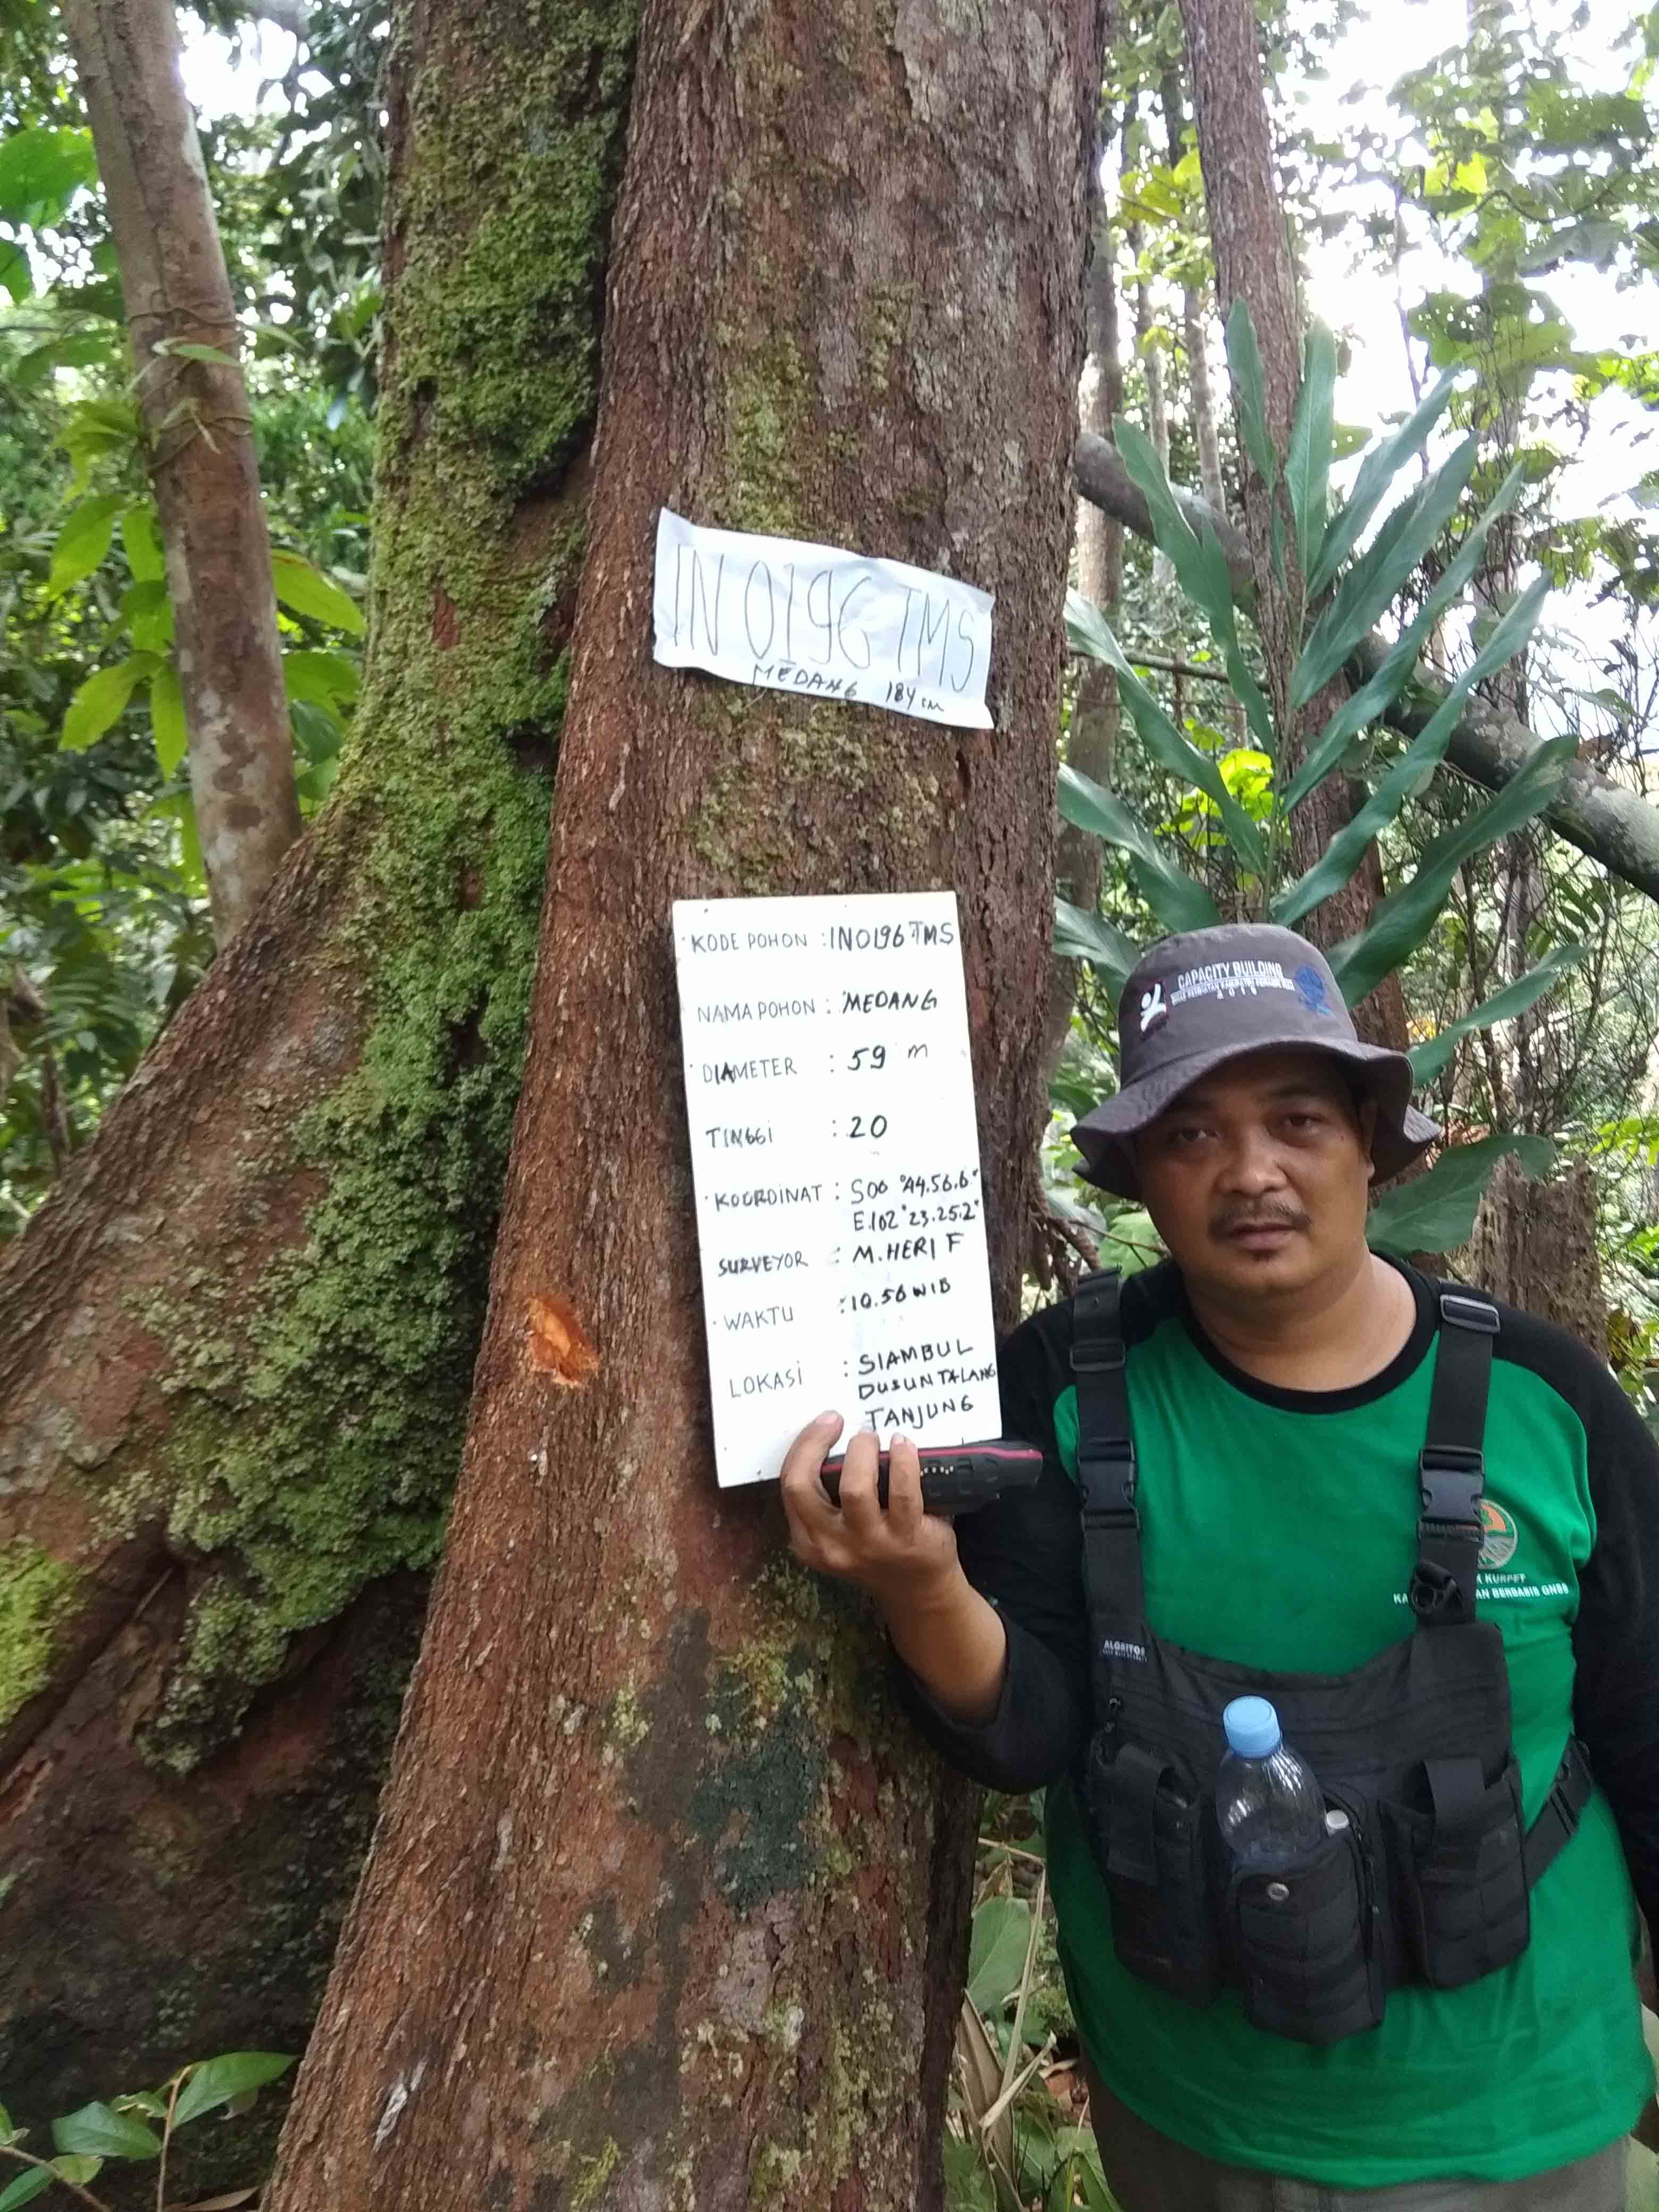 IN 0196 TMS
MEDANG 184 cm
KODE POHON : IN0196 TMS
NAMA POHON : MEDANG
DIAMETER : 59 m
TINGGI : 20
KOORDINAT : S00 °44.56.6"
E.102°23.25.2"
SURVEYOR : M. HERI F
WAKTU : 10.56 WIB
LOKASI : SIAMBUL
DUSUN TALANG
TANJUNG
CAPACITY BUILDING
2019
KURPET
AN BERBASIS GNSS